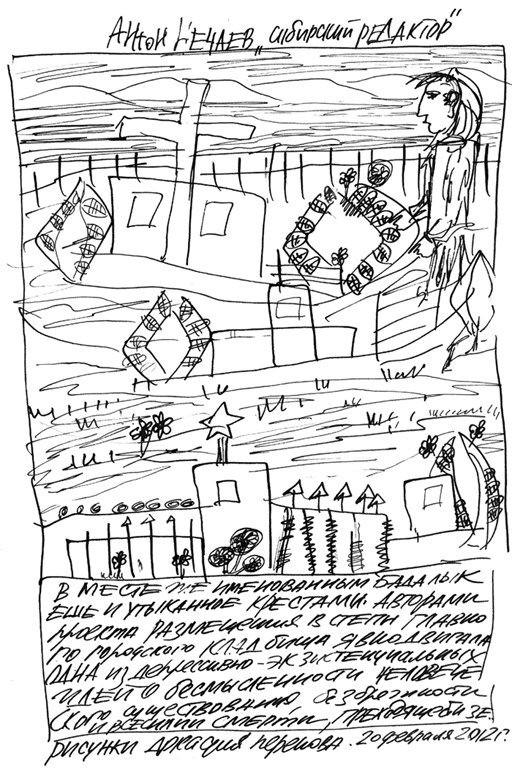 АНТОН НЕЧАЕВ „СИБИРСКИЙ РЕДАКТОР"
В МЕСТЕ ИМЕНОВАННЫМ БАДАЛЫК
ЕЩЕ И УТЫКАННОЕ КРЕСТАМИ. АВТОРАМИ
ПРОЕКТА РАЗМЕЩЕНИЯ В СТЕПИ ГЛАВНО
ГО ГОРОДСКОГО КЛАДБИЩА ЯВНО ДВИГАЛА
ОДНА ИЗ ДЕПРЕССИВНО-ЭКЗИСТЕНЦИАЛЬНЫХ
ИДЕЙ О БЕСМЫСЛЕННОСТИ ЧЕЛОВЕЧЕ
СКОГО СУЩЕСТВОВАНИЯ
И ВСЕСИЛИИ СМЕРТИ,
РИСУНКИ 20 ФЕВРАЛЯ 2012 Г.